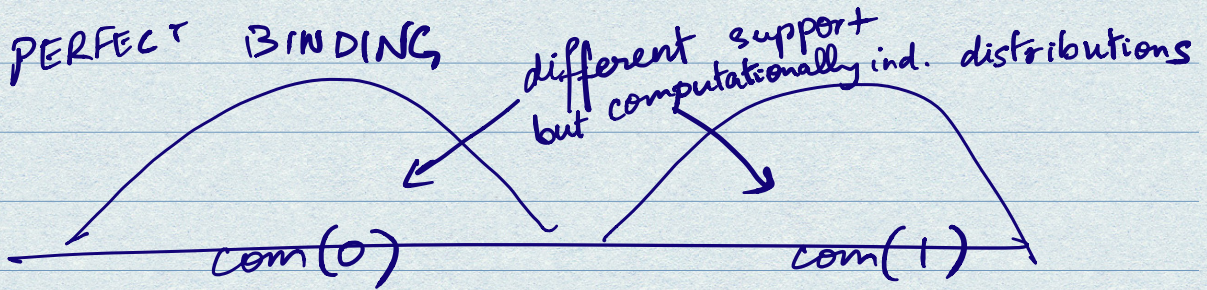 PERFECT BINDING
different support
but computationally ind. distributions
com(0) com(1)